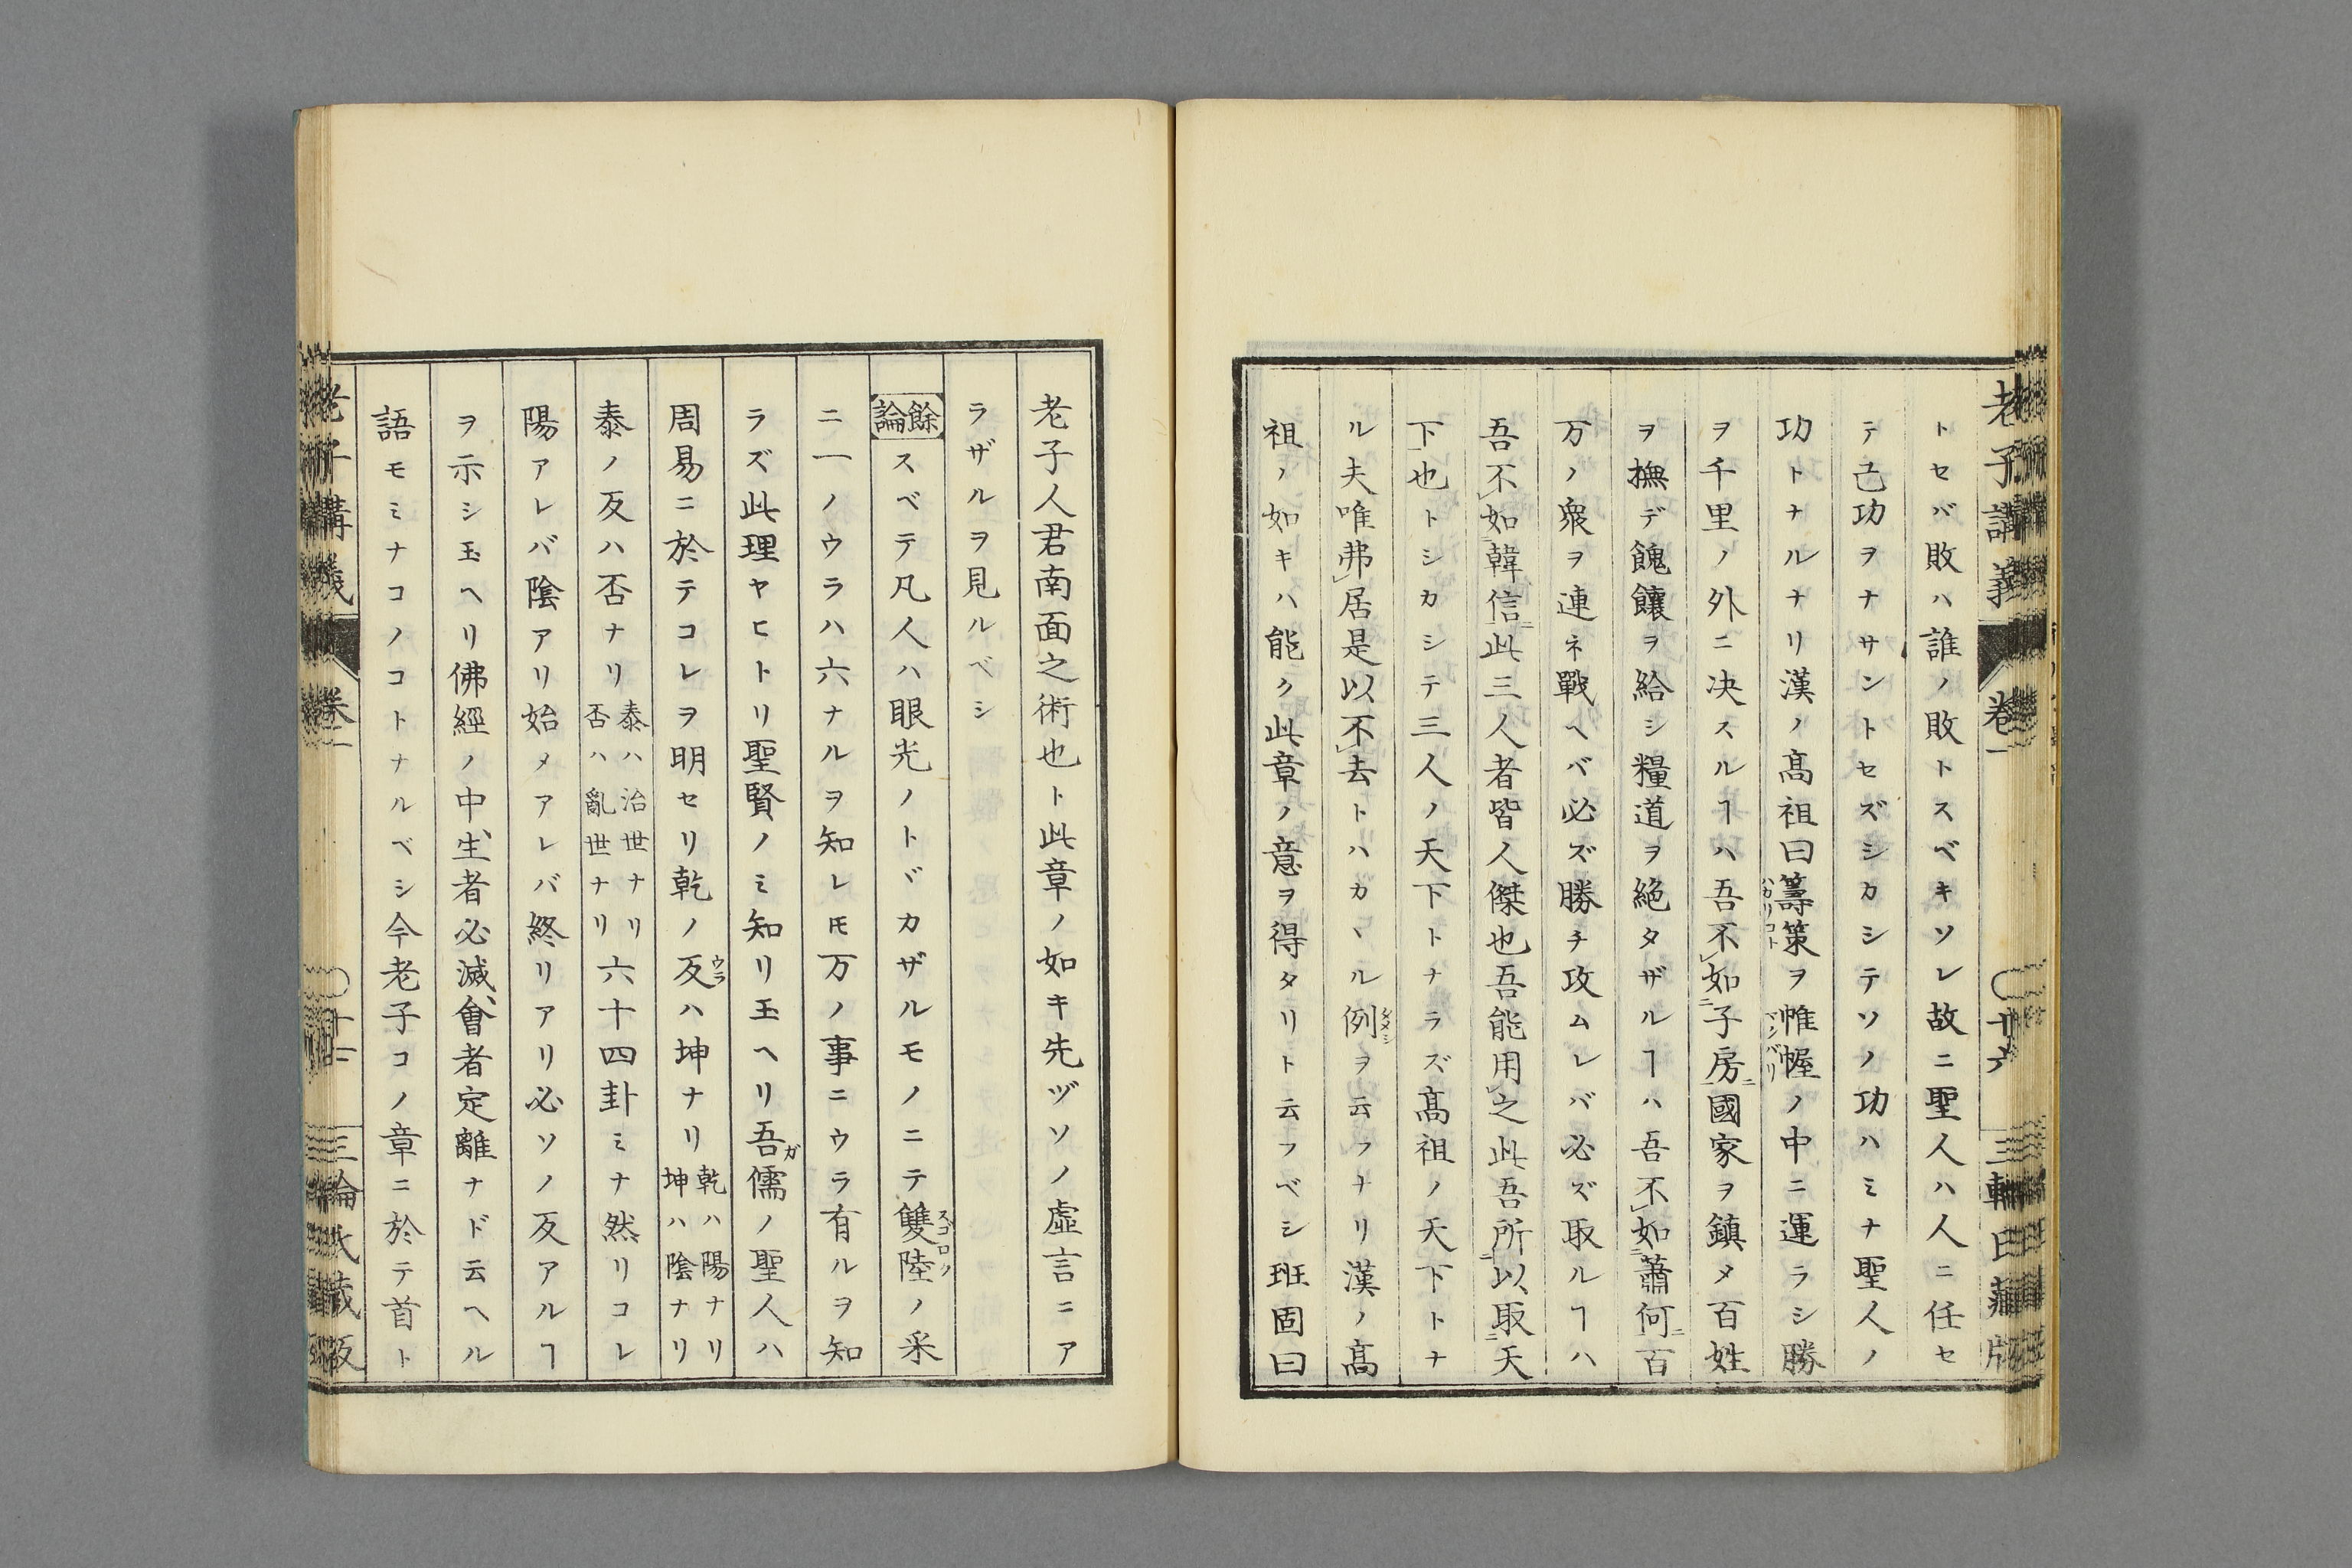 トセバ敗ハ誰ノ敗トスベキソレ故ニ聖人ハ人ニ任セ
テ己功ヲナサントセズシカシテソノ功ハミナ聖人ノ
功トナルナリ漢ノ髙祖曰籌策ヲ帷幄ノ中ニ運ラシ勝
ヲ千里ノ外ニ决スルヿハ吾不如子房國家ヲ鎮メ百姓
ヲ撫デ餽饟ヲ給シ糧道ヲ絶タザルヿハ吾不如蕭何百
万ノ衆ヲ連ネ戰ヘバ必ズ勝チ攻ムレバ必ズ取ルヿハ
吾不如韓信此三人者皆人傑也吾能用之此吾所以取天
下也トシカシテ三人ノ天下トナラズ髙祖ノ天下トナ
ル夫唯弗居是以不去トハカヽル例ヲ云フナリ漢ノ髙
祖ノ如キハ能ク此章ノ意ヲ得タリト云フベシ班固曰
老子人君南面之術也ト此章ノ如キ先ヅソノ虚言ニア
ラザルヲ見ルベシ
餘論スベテ凡人ハ眼光ノトヾカザルモノニテ雙陸ノ采
ニ一ノウラハ六ナルヲ知レ𪜈万ノ事ニウラ有ルヲ知
ラズ此理ヤヒトリ聖賢ノミ知リ玉ヘリ吾儒ノ聖人ハ
周易ニ於テコレヲ明セリ乾ノ反ハ坤ナリ乾ハ陽ナリ坤ハ陰ナリ
泰ノ反ハ否ナリ泰ハ治世ナリ否ハ亂世ナリ六十四卦ミナ然リコレ
陽アレバ陰アリ始メアレバ終リアリ必ソノ反アルヿ
ヲ示シ玉ヘリ佛經ノ中生者必滅會者定離ナド云ヘル
語モミナコノコトナルベシ今老子コノ章ニ於テ首ト